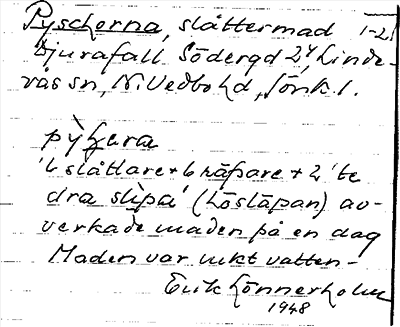 Pyscherna, slåttermad 1-2.
Djurafall Södergd 2⁴, Linde-
vås sn, N. Vedbo hd, Jönk. l.
pỳʃɛra
'6 slåttare + 6 räfsare + 2 'te
dra slipa' (höslåpan) av-
verkade maden på en dag
Maden var mkt vatten-
Erik Lönnerholm
1948